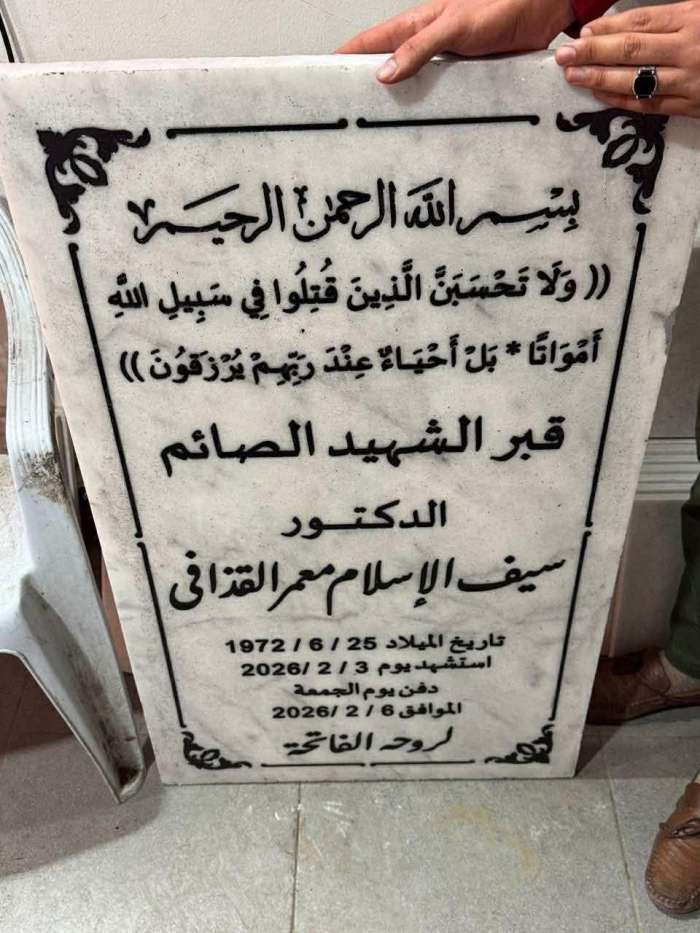 بِسْمِ اللَّهِ الرحمن الرحيم
(( وَلَا تَحْسَبَنَّ الَّذِينَ قُتِلُوا فِي سَبِيلِ اللَّهِ
أَمْوَاتًا * بَلْ أَحْيَاءٌ عِنْدَ رَبِّهِمْ يُرْزَقُونَ ))
قبر الشهيد الصائم
الدكتور
سيف الإسلام معمر القذافي
تاريخ الميلاد 25 / 6 / 1972
استشهد يوم 3 / 2 /2026
دفن يوم الجمعة
الموافق 6 / 2 /2026
لروحه الفاتحة